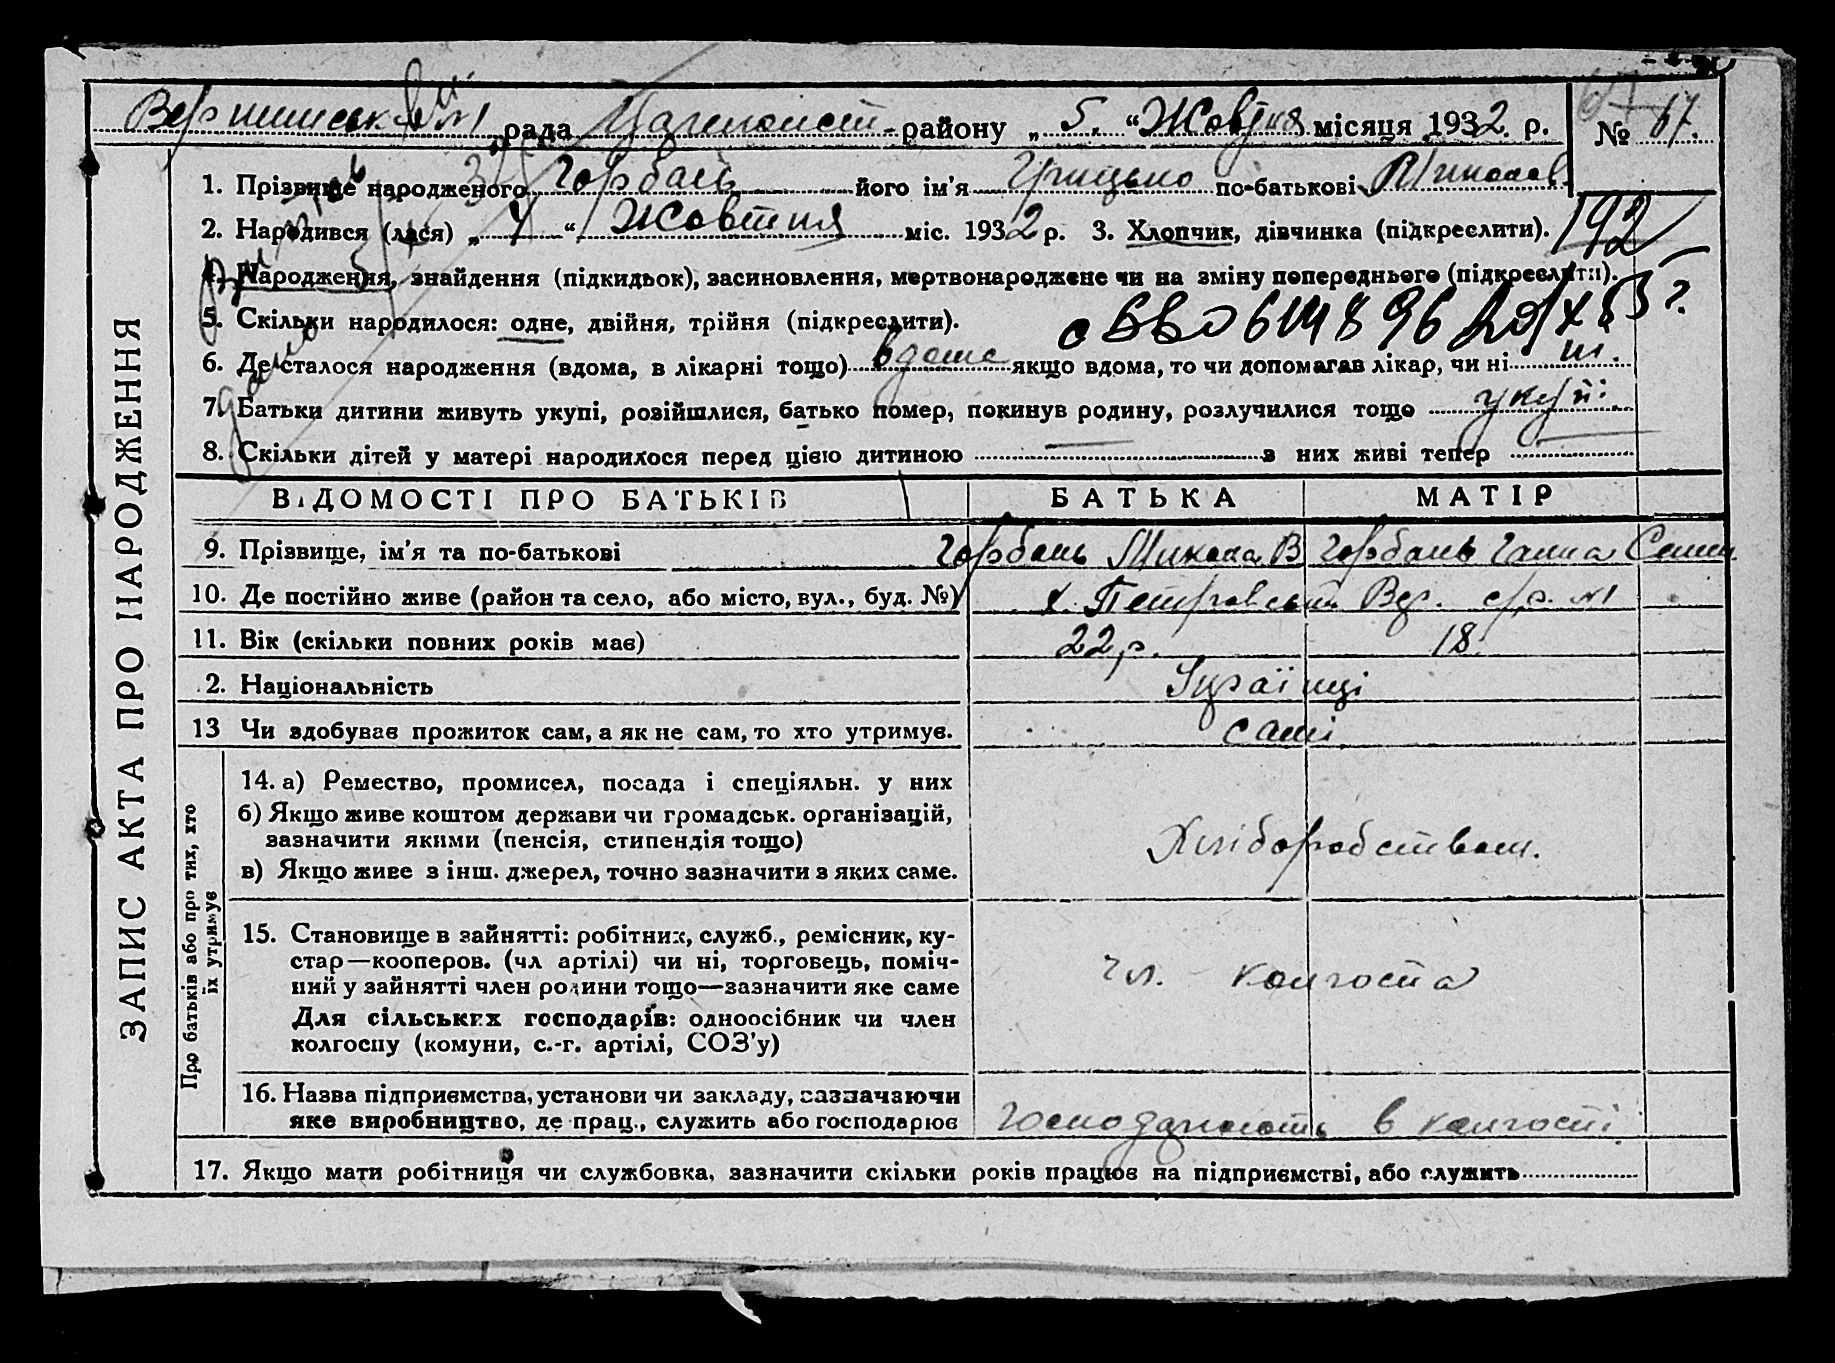 рада району „ 5 “ Жовтня місяця 1932 р. № 67.
1. Прізвище народженого Горбань його ім'я Грицько по-батькові Миколаев.
2. Народився (лася) „ 4 “ Жовтня міс. 1932 р. 3. Хлопчик, дівчинка (підкреслити).
192
4. Народження, знайдення (підкидьок), засиновлення, мертвонароджене чи на зміну попереднього (підкреслити).
5. Скільки народилося: одне, двійня, трійня (підкреслити).
6. Де сталося народження (вдома, в лікарні тощо) вдома якщо вдома, то чи допомагав лікар, чи ні ні.
7. Батьки дитини живуть укупі, розійшлися, батько помер, покинув родину, розлучилися тощо укупі.
8. Скільки дітей у матері народилося перед цією дитиною — з них живі тепер —
ЗАПИС АКТА ПРО НАРОДЖЕННЯ
ВІДОМОСТІ ПРО БАТЬКІВ БАТЬКА МАТІР
9. Прізвище, ім'я та по-батькові Горбань Микола В Горбань Ганна Семен
10. Де постійно живе (район та село, або місто, вул., буд. №) х. Петровський Вер. с/р. №1
11. Вік (скільки повних років має) 22 р. 18.
2. Національність Українці
13 Чи здобуває прожиток сам, а як не сам, то хто утримує. самі
Про батьків або про тих, хто
їх утримує
14. а) Ремество, промисел, посада і спеціяльн. у них
б) Якщо живе коштом держави чи громадськ. організацій,
зазначити якими (пенсія, стипендія тощо)
Хліборобством.
в) Якщо живе з інш. джерел, точно зазначити з яких саме.
15. Становище в зайнятті: робітник, служб., ремісник, ку-
стар—кооперов. (чл артілі) чи ні, торговець, поміч-
ний у зайнятті член родини тощо—зазначити яке саме
чл. колгоспа
Для сільських господарів: одноосібник чи член
колгоспу (комуни, с.-г. артілі, СОЗ'у)
16. Назва підприємства, установи чи закладу, зазначаючи
яке виробництво, де прац., служить або господарює господарюють в колгоспі
17. Якщо мати робітниця чи службовка, зазначити скільки років працює на підприємстві, або служить